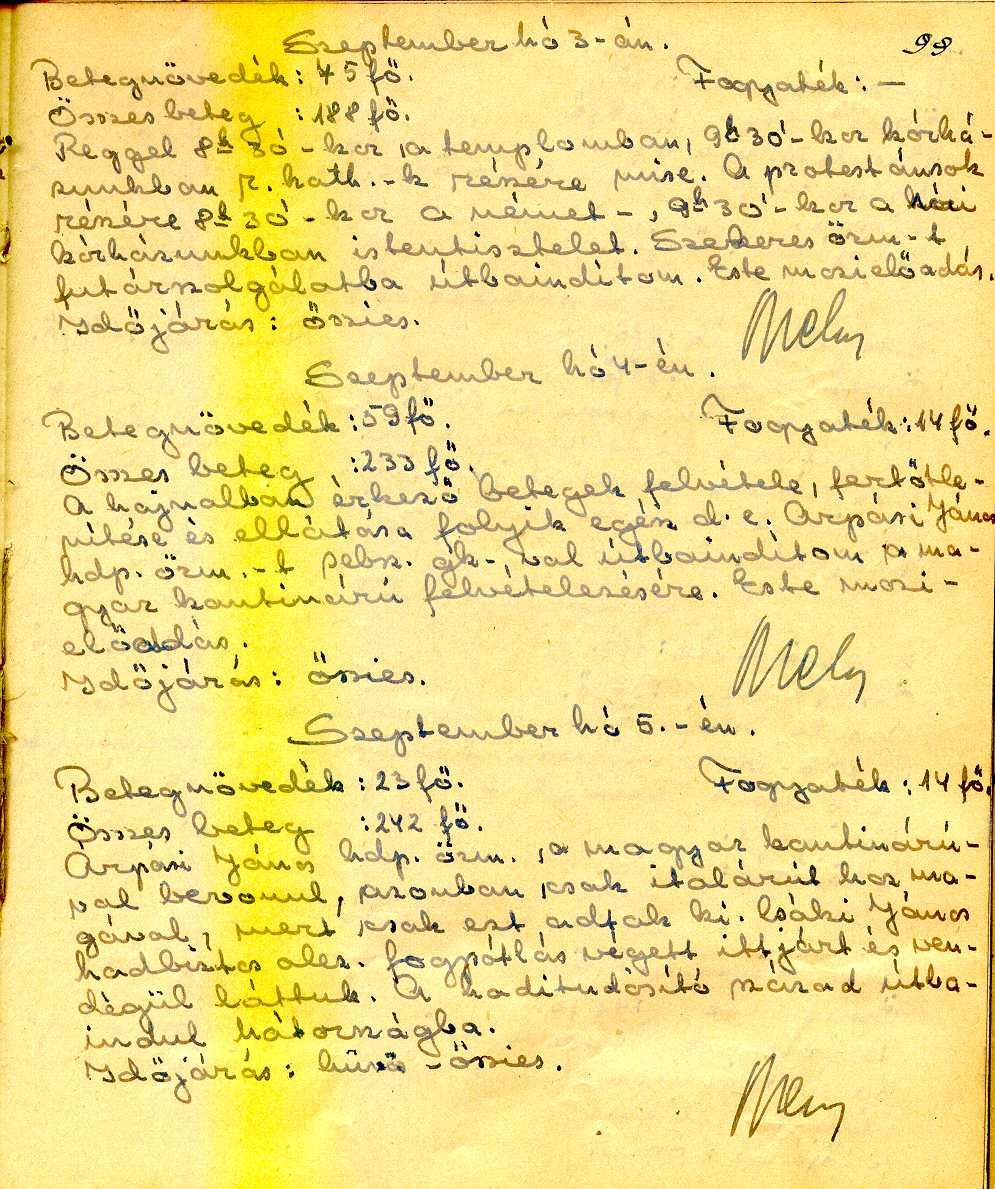 99
Szeptember hó 3-án.
Betegnövedék: 45 fő. Fogyaték: —
Összes beteg : 188 fő.
Reggel 8h 30'-kor a templomban, 9h 30'-kor kórhá-
zunkban r. kath.-k részére mise. A protestánsok
részére 8h 30'-kor a német-, 9h 30'-kor a
kórházunkban istentisztelet. Szekeres őrm.-t
futárszolgálatba útbaindítom. Este mozielőadás.
Időjárás: őszies.
Szeptember hó 4-én.
Betegnövedék: 59 fő. Fogyaték: 14 fő.
Összes beteg : 233 fő.
A hajnalban érkező betegek felvétele, fertőtle-
nítése és ellátása folyik egész d. e. Árpási János
hdp. őrm.-t sebsz. gk-val útbaindítom a ma-
gyar kantinárú felvételezésére. Este mozi-
előadás.
Időjárás: őszies.
Szeptember hó 5.-én.
Betegnövedék: 23 fő. Fogyaték: 14 fő.
Összes beteg : 242 fő.
Árpási János hdp. őrm., a magyar kantinárú-
val bevonul, azonban csak italárút hoz ma-
gával, mert csak ezt adtak ki. Csáki János
hadbiztos alez. fogpótlás végett ittjárt és ven-
dégül láttuk. A haditudósító század útba-
indul hátországba.
Időjárás: hűvös-őszies.